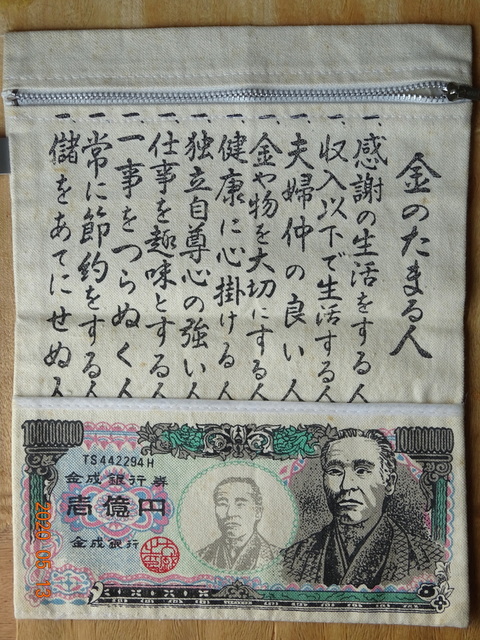 金のたまる人
一、感謝の生活をする人
一、収入以下で生活する人
一、夫婦仲の良い人
一、金や物を大切にする人
一、健康に心掛ける人
一、独立自尊心の強い人
一、仕事を趣味とする人
一、一事をつらぬく人
一、常に節約をする人
一、儲をあてにせぬ人
100000000
100000000
TS442294H
金成銀行券
壱億円
金成銀行
2020 05 13